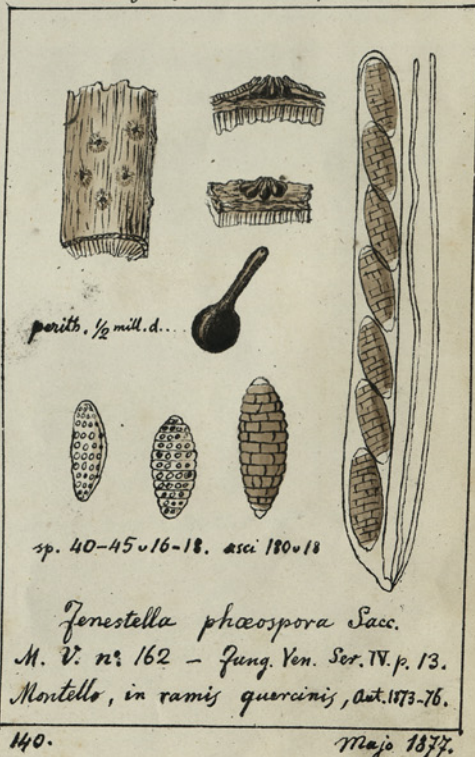 perith. ½ mill. d....
sp. 40-45 ᴗ 16-18. asci 180 ᴗ 18
Fenestella phæospora Sacc.
M. V. nº 162 — Fung. Ven. Ser. IV. p. 13.
Montello, in ramis quercinis, Aut. 1873-76.
140. Majo 1877.